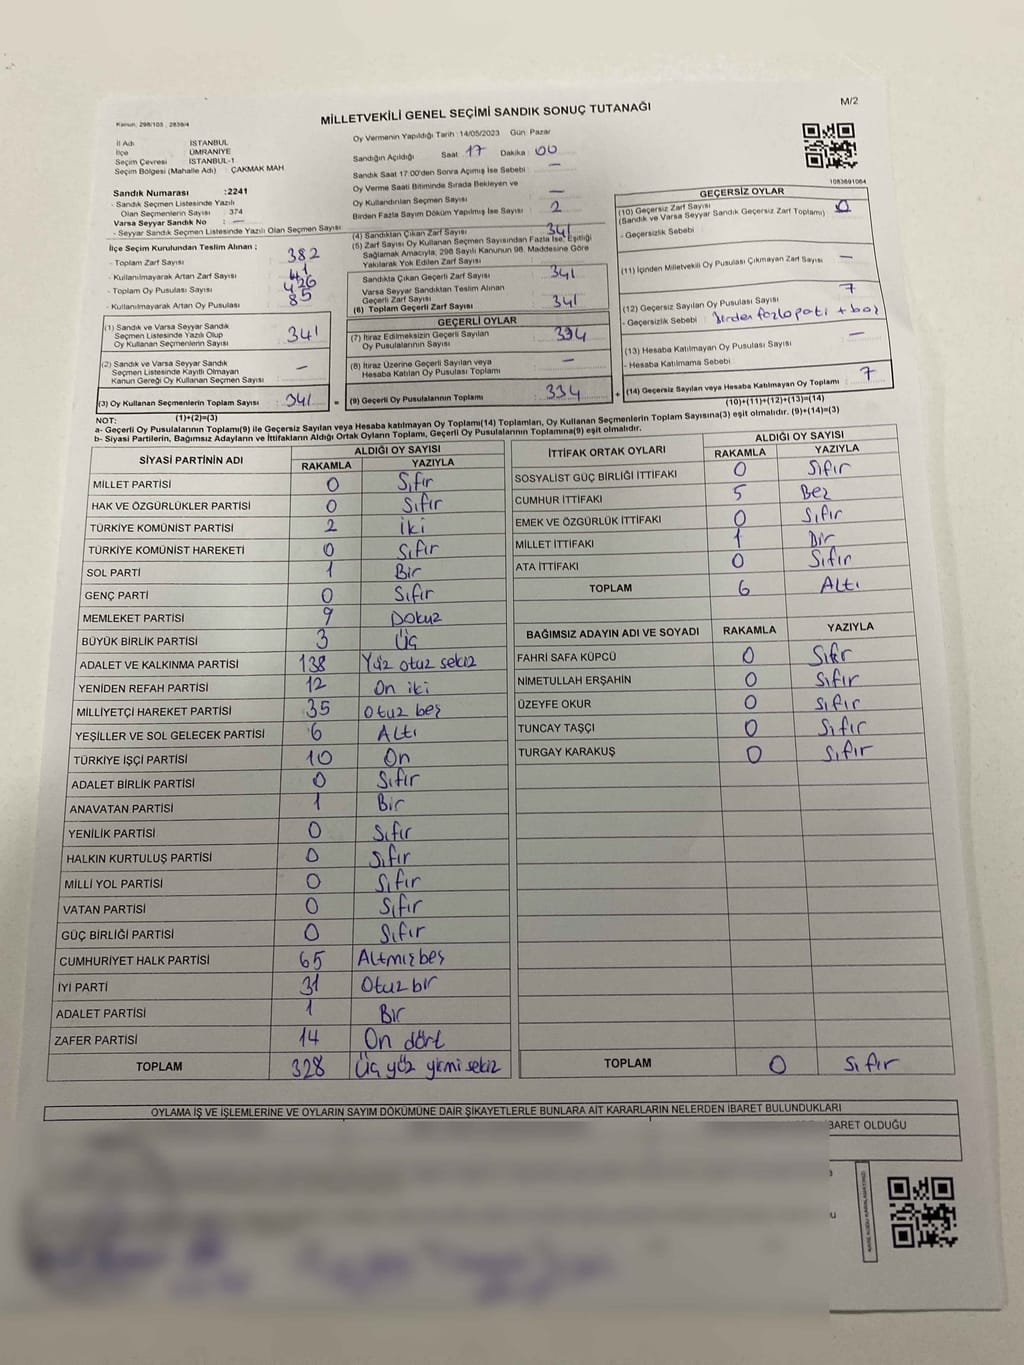 M/2
MİLLETVEKİLİ GENEL SEÇİMİ SANDIK SONUÇ TUTANAĞI
Kanun: 298/103 , 2839/4
İl Adı : İSTANBUL
İlçe : ÜMRANİYE
Seçim Çevresi : İSTANBUL-1
Seçim Bölgesi (Mahalle Adı) : ÇAKMAK MAH
Sandık Numarası :2241
- Sandık Seçmen Listesinde Yazılı
Olan Seçmenlerin Sayısı : 374
Varsa Seyyar Sandık No : —
- Seyyar Sandık Seçmen Listesinde Yazılı Olan Seçmen Sayısı
İlçe Seçim Kurulundan Teslim Alınan ;
- Toplam Zarf Sayısı : 382
- Kullanılmayarak Artan Zarf Sayısı : 41
- Toplam Oy Pusulası Sayısı : 426
- Kullanılmayarak Artan Oy Pusulası : 85
(1) Sandık ve Varsa Seyyar Sandık
Seçmen Listesinde Yazılı Olup
Oy Kullanan Seçmenlerin Sayısı : 341
(2) Sandık ve Varsa Seyyar Sandık
Seçmen Listesinde Kayıtlı Olmayan
Kanun Gereği Oy Kullanan Seçmen Sayısı : —
(3) Oy Kullanan Seçmenlerin Toplam Sayısı : 341
(1)+(2)=(3)
Oy Vermenin Yapıldığı Tarih :14/05/2023 Gün: Pazar
Sandığın Açıldığı Saat : 17 Dakika : 00
Sandık Saat 17:00'den Sonra Açımış İse Sebebi : —
Oy Verme Saati Bitiminde Sırada Bekleyen ve
Oy Kullandırılan Seçmen Sayısı : —
Birden Fazla Sayım Döküm Yapılmış İse Sayısı : 2
(4) Sandıktan Çıkan Zarf Sayısı : 341
(5) Zarf Sayısı Oy Kullanan Seçmen Sayısından Fazla İse, Eşitliği
Sağlamak Amacıyla, 298 Sayılı Kanunun 98. Maddesine Göre
Yakılarak Yok Edilen Zarf Sayısı
Sandıkta Çıkan Geçerli Zarf Sayısı : 341
Varsa Seyyar Sandıktan Teslim Alınan
Geçerli Zarf Sayısı
(6) Toplam Geçerli Zarf Sayısı : 341
GEÇERLİ OYLAR
(7) İtiraz Edilmeksizin Geçerli Sayılan
Oy Pusulalarının Sayısı : 334
(8) İtiraz Üzerine Geçerli Sayılan veya
Hesaba Katılan Oy Pusulası Toplamı : —
= (9) Geçerli Oy Pusulalarının Toplamı : 334
1083691064
GEÇERSİZ OYLAR
(10) Geçersiz Zarf Sayısı : 0
(Sandık ve Varsa Seyyar Sandık Geçersiz Zarf Toplamı)
- Geçersizlik Sebebi :
(11) İçinden Milletvekili Oy Pusulası Çıkmayan Zarf Sayısı : —
(12) Geçersiz Sayılan Oy Pusulası Sayısı : 7
- Geçersizlik Sebebi : Birden fazla parti + boş
(13) Hesaba Katılmayan Oy Pusulası Sayısı : —
- Hesaba Katılmama Sebebi :
+ (14) Geçersiz Sayılan veya Hesaba Katılmayan Oy Toplamı : 7
(10)+(11)+(12)+(13)=(14)
NOT:
a- Geçerli Oy Pusulalarının Toplamı(9) ile Geçersiz Sayılan veya Hesaba katılmayan Oy Toplamı(14) Toplamları, Oy Kullanan Seçmenlerin Toplam Sayısına(3) eşit olmalıdır. (9)+(14)=(3)
b- Siyasi Partilerin, Bağımsız Adayların ve İttifakların Aldığı Ortak Oyların Toplamı, Geçerli Oy Pusulalarının Toplamına(9) eşit olmalıdır.
SİYASİ PARTİNİN ADI ALDIĞI OY SAYISI
RAKAMLA YAZIYLA
MİLLET PARTİSİ 0 Sıfır
HAK VE ÖZGÜRLÜKLER PARTİSİ 0 Sıfır
TÜRKİYE KOMÜNİST PARTİSİ 2 iki
TÜRKİYE KOMÜNİST HAREKETİ 0 Sıfır
SOL PARTİ 1 Bir
GENÇ PARTİ 0 Sıfır
MEMLEKET PARTİSİ 9 Dokuz
BÜYÜK BİRLİK PARTİSİ 3 Üç
ADALET VE KALKINMA PARTİSİ 138 Yüz otuz sekiz
YENİDEN REFAH PARTİSİ 12 On iki
MİLLİYETÇİ HAREKET PARTİSİ 35 Otuz beş
YEŞİLLER VE SOL GELECEK PARTİSİ 6 Altı
TÜRKİYE İŞÇİ PARTİSİ 10 On
ADALET BİRLİK PARTİSİ 0 Sıfır
ANAVATAN PARTİSİ 1 Bir
YENİLİK PARTİSİ 0 Sıfır
HALKIN KURTULUŞ PARTİSİ 0 Sıfır
MİLLİ YOL PARTİSİ 0 Sıfır
VATAN PARTİSİ 0 Sıfır
GÜÇ BİRLİĞİ PARTİSİ 0 Sıfır
CUMHURİYET HALK PARTİSİ 65 Altmışbeş
İYİ PARTİ 31 Otuz bir
ADALET PARTİSİ 1 Bir
ZAFER PARTİSİ 14 On dört
TOPLAM 328 Üç yüz yirmi sekiz
İTTİFAK ORTAK OYLARI ALDIĞI OY SAYISI
RAKAMLA YAZIYLA
SOSYALİST GÜÇ BİRLİĞİ İTTİFAKI 0 Sıfır
CUMHUR İTTİFAKI 5 Beş
EMEK VE ÖZGÜRLÜK İTTİFAKI 0 Sıfır
MİLLET İTTİFAKI 1 Bir
ATA İTTİFAKI 0 Sıfır
TOPLAM 6 Altı
BAĞIMSIZ ADAYIN ADI VE SOYADI RAKAMLA YAZIYLA
FAHRİ SAFA KÜPCÜ 0 Sıfır
NİMETULLAH ERŞAHİN 0 Sıfır
ÜZEYFE OKUR 0 Sıfır
TUNCAY TAŞÇI 0 Sıfır
TURGAY KARAKUŞ 0 Sıfır
TOPLAM 0 Sıfır
OYLAMA İŞ VE İŞLEMLERİNE VE OYLARIN SAYIM DÖKÜMÜNE DAİR ŞİKAYETLERLE BUNLARA AİT KARARLARIN NELERDEN İBARET BULUNDUKLARI
BARET OLDUĞU